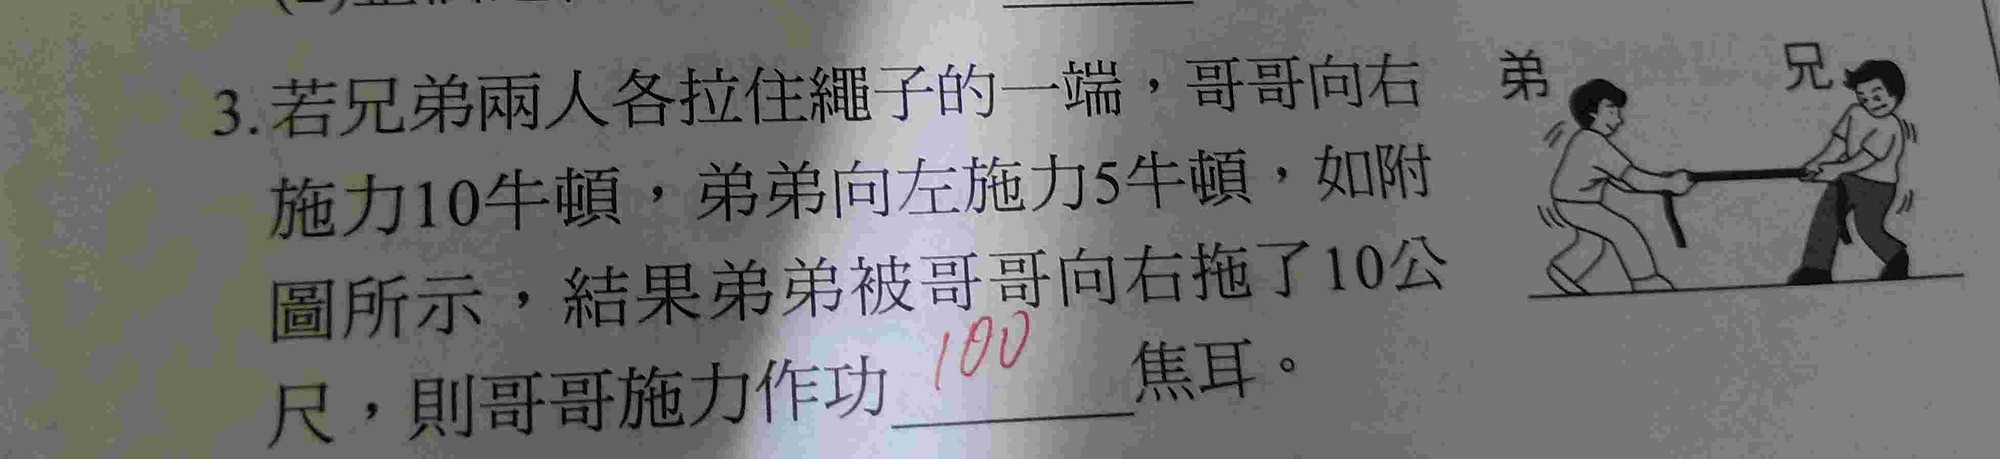 3.若兄弟兩人各拉住繩子的一端，哥哥向右
施力10牛頓，弟弟向左施力5牛頓，如附
圖所示，結果弟弟被哥哥向右拖了10公
尺，則哥哥施力作功 100 焦耳。
弟 兄